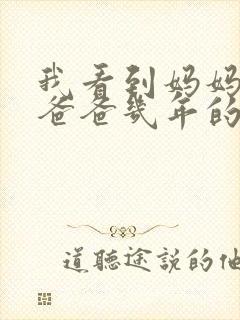 我看到妈妈
爸爸几年的
道聽途說的他